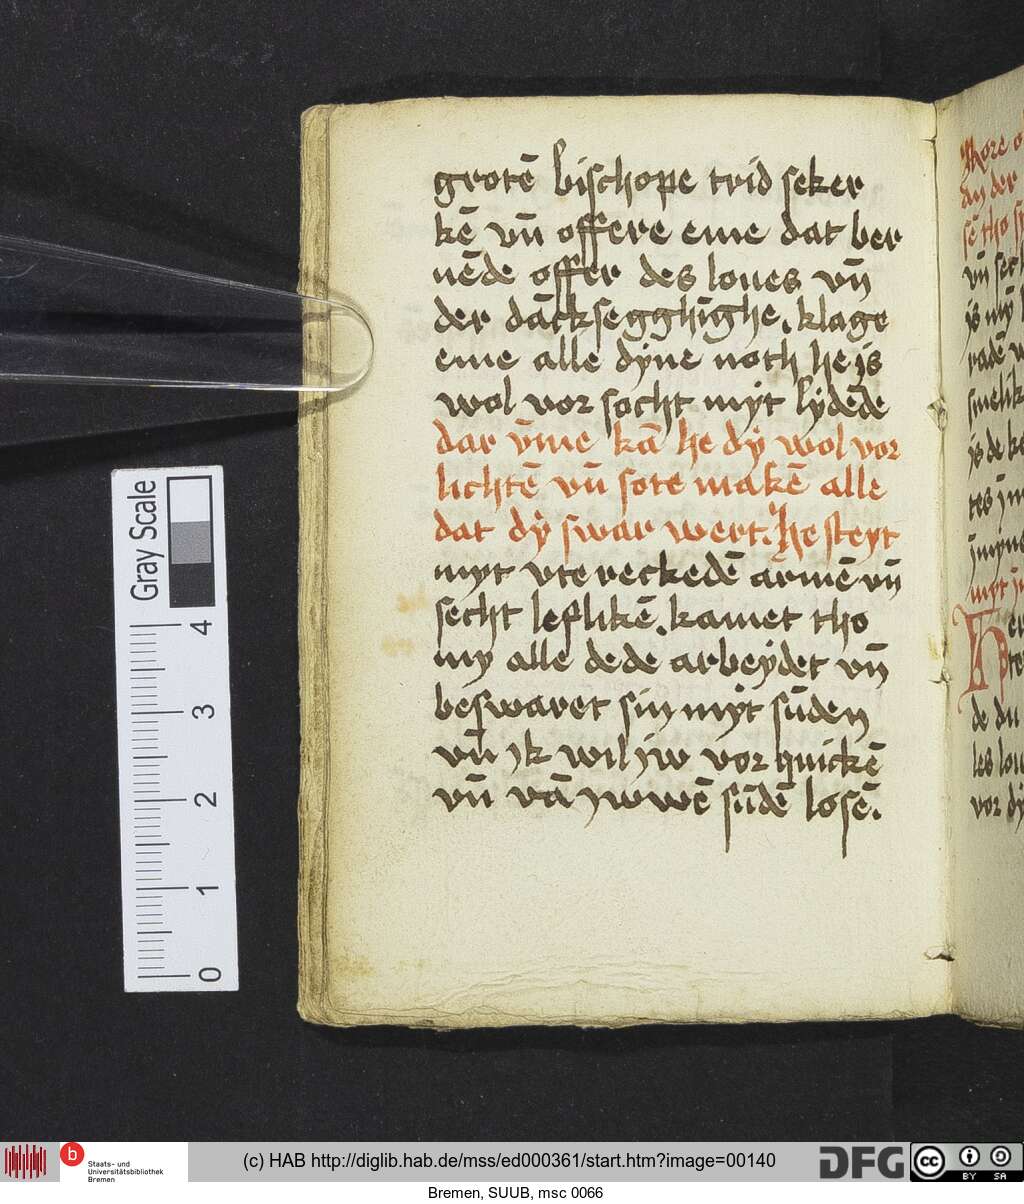 grotē bischope trid seker
kē vn̄ offere eme dat ber
nēde offer des loues vn̄
der dāckseggħīghe. klage
eme alle dyne noth he is
wol vor socht myt lydēde
dar v̄me kā he dy wol vor
lichtē vn̄ sote makē alle
dat dy swar wert. he steyt
myt vte reckedē armē vn̄
secht leflikē. kamet tho
my alle de de arbeydet vn̄
beswaret sin myt sūden
vn̄ ik wil iw vor quickē
vn̄ vā iwwē sūdē losē.
an der
sē tho
is my
radē
smelik
is de
de du
les
vor dy
Gray Scale
4
3
2
1
0
b
Staats- und
Universitätsbibliothek
Bremen
(c) HAB http://diglib.hab.de/mss/ed000361/start.htm?image=00140
DFG
cc
BY SA
Bremen, SUUB, msc 0066